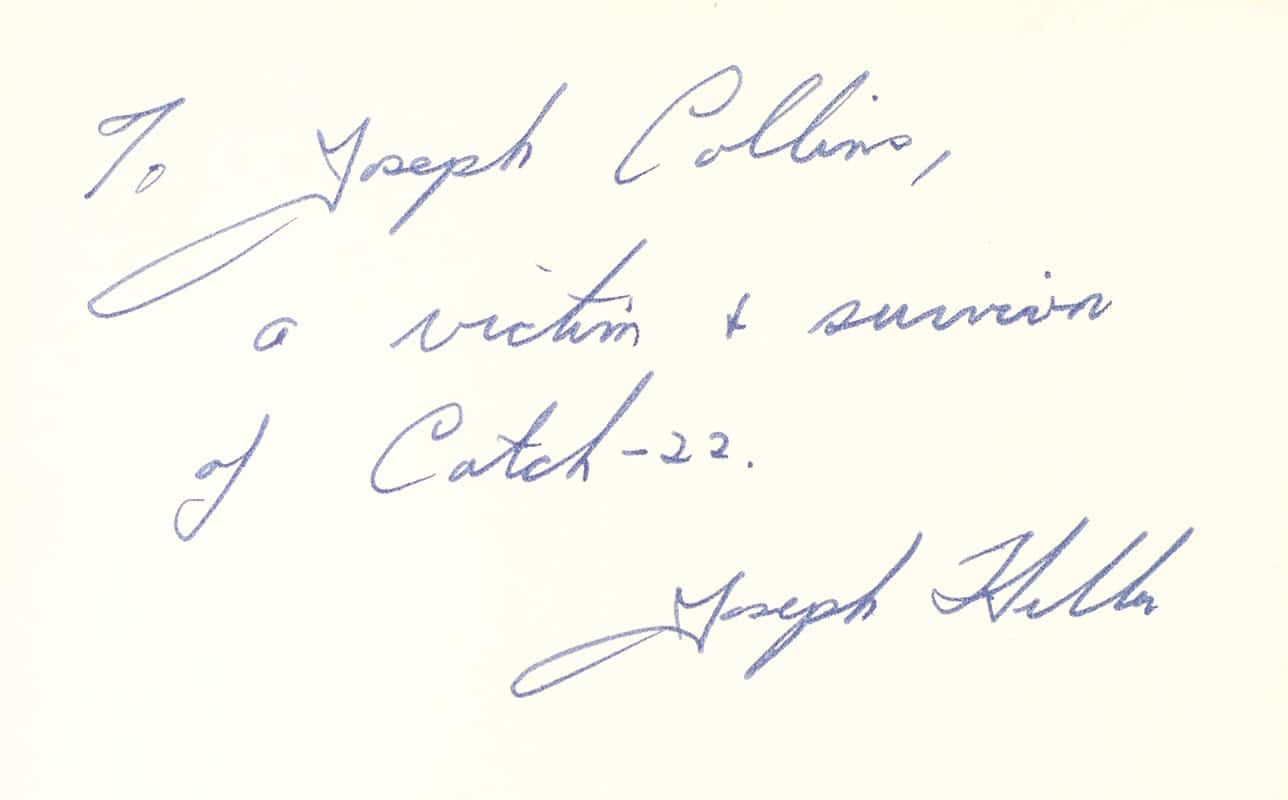 To Joseph Collins,
a victim + survivor
of Catch-22.
Joseph Heller